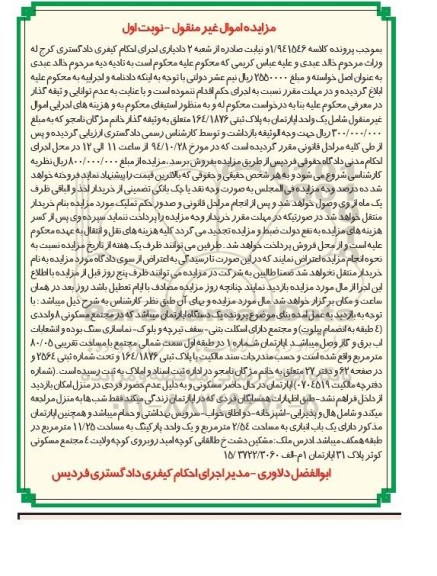 مزایده اموال غیر منقول - نوبت اول
بموجب پرونده کلاسه ۱/۹۴۱۵۴۶ و نیابت صادره از شعبه ۲ دادیاری اجرای احکام کیفری دادگستری کرج له
وراث مرحوم خالد عبدی و علیه عباس کریمی که محکوم علیه محکوم است به تادیه دیه مرحوم خالد عبدی
به عنوان اصل خواسته و مبلغ ۲۵۵۰۰۰۰ ریال نیم عشر دولتی با توجه به اینکه دادنامه و اجراییه به محکوم علیه
ابلاغ گردیده و در مهلت مقرر نسبت به اجرای حکم اقدام ننموده است و با عنایت به عدم توانایی و ثیقه گذار
در معرفی محکوم علیه بنا به درخواست محکوم له و به منظور استیفای محکوم به و هزینه های اجرایی اموال
غیر منقول شامل یک واحد اپارتمان به پلاک ثبتی ۱۶۴/۱۸۷۶ متعلق به وثیقه گذار خانم مژگان نامجو که به مبلغ
۳۰۰/۰۰۰/۰۰۰ ریال جهت وجه الوثیقه بازداشت و توسط کارشناس رسمی دادگستری ارزیابی گردیده و پس
از طی کلیه مراحل قانونی مقرر گردیده است که در مورخ ۹۴/۱۰/۲۸ از ساعت ۱۱ الی ۱۲ در محل اجرای
احکام مدنی دادگاه حقوقی فردیس از طریق مزایده بفروش برسد. مزایده از مبلغ ۸۰۰/۰۰۰/۰۰۰ ریال نظریه
کارشناسی شروع می شود و به هر شخص حقیقی و حقوقی که بالاترین قیمت را پیشنهاد نماید فروخته خواهد
شد ده درصد وجه مزایده فی المجلس به صورت وجه نقد یا چک بانکی تضمینی از خریدار اخذ و الباقی ظرف
یک ماه از وی وصول خواهد شد و پس از انجام مراحل قانونی و صدور حکم تملیک مورد مزایده بنام خریدار
منتقل خواهد شد در صورتیکه در مهلت مقرر خریدار وجه مزایده را پرداخت ننماید سپرده وی پس از کسر
هزینه های مزایده به نفع دولت ضبط و مزایده تجدید می گردد کلیه هزینه های نقل و انتقال به عهده محکوم
علیه است و از محل فروش پرداخت خواهد شد. طرفین می توانند ظرف یک هفته از تاریخ مزایده نسبت به
نحوه انجام مزایده اعتراض نمایند که در این صورت تا رسیدگی به اعتراض از سوی دادگاه مورد مزایده به نام
خریدار منتقل نخواهد شد ضمنا طالبین به شرکت در مزایده می توانند ظرف پنج روز قبل از مزایده با اطلاع
این اجرا از مال مورد مزایده بازدید نمایند چنانچه روز مزایده مصادف با ایام تعطیل باشد روز بعد در همان
ساعت و مکان برگزار خواهد شد مال مورد مزایده و بهای آن طبق نظر کارشناس به شرح ذیل میباشد : با
توجه به بازدید به عمل امده بنای موضوع پرونده یک دستگاه اپارتمان میباشد که در مجتمع مسکونی ۸ واحدی
(۴ طبقه به انضمام پیلوت) و مجتمع دارای اسکلت بتنی - سقف تیرچه و بلوک - نماسازی سنگ بوده و انشعابات
اب برق و گاز وصل میباشد. اپارتمان شماره ۱ در طبقه اول سمت شمالی مجتمع با مساحت تقریبی ۸۰/۰۵
متر مربع واقع شده است و حسب مندرجات سند مالکیت با پلاک ثبتی ۱۶۴/۱۸۷۶ و تحت شماره ثبتی ۲۵۶۴ و
در صفحه ۶۲ و دفتر ۲۷ متعلق به خانم مژگان نامجو در اداره ثبت اسناد و املاک به ثبت رسیده است. (شماره
دفترچه مالکیت ۰۷۰۴۵۱۹) اپارتمان در حال حاضر مسکونی و به دلیل عدم حضور فردی در منزل امکان بازدید
از داخل فراهم نشد - طبق اظهارات همسایگان فردی که در اپارتمان زندگی میکند فقط شب ها به منزل مراجعه
میکند و شامل هال و پذیرایی - اشپزخانه - دو اطاق خواب - سرویس بهداشتی و حمام میباشد و همچنین اپارتمان
مذکور دارای یک باب انباری به مساحت ۲/۵۴ متر مربع و یک واحد پارکینگ به مساحت ۱۱/۲۵ متر مربع در
طبقه همکف میباشد. ادرس ملک : مشکین دشت خ طالقانی کوچه امید روبروی کوچه ولایت ۴ مجتمع مسکونی
کوثر پلاک ۳۱ اپارتمان ۱ م-الف ۳۷۲۲/۳۰۶۰ /۱۵
ابوالفضل دلاوری - مدیر اجرای احکام کیفری دادگستری فردیس